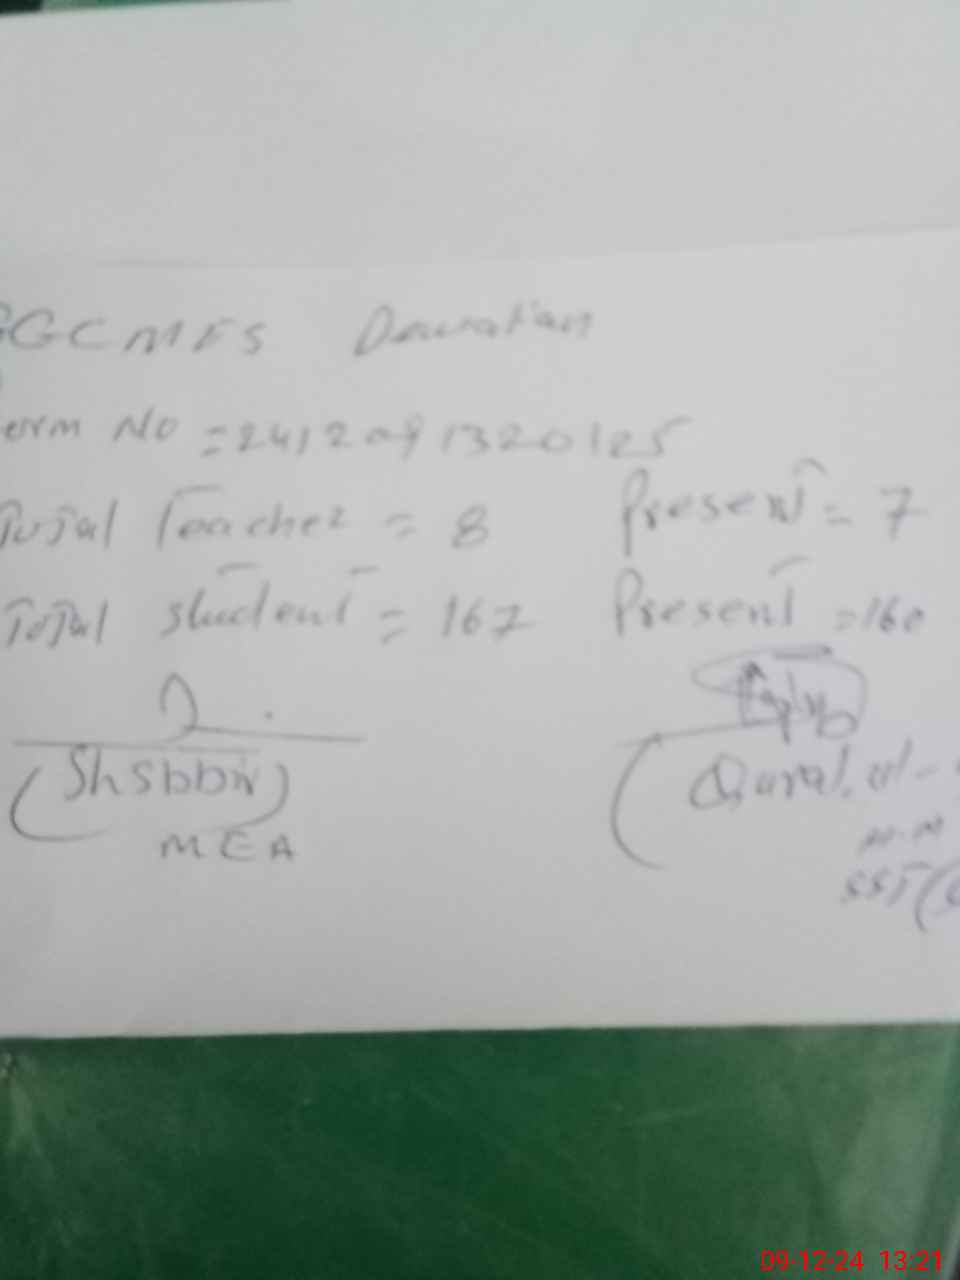 GGCMES
erm No = 2412091320125
Total Teacher = 8 Present = 7
Total student = 167 Present = 160
(Shsbbir)
MEA
SST (
09-12-24 13:21